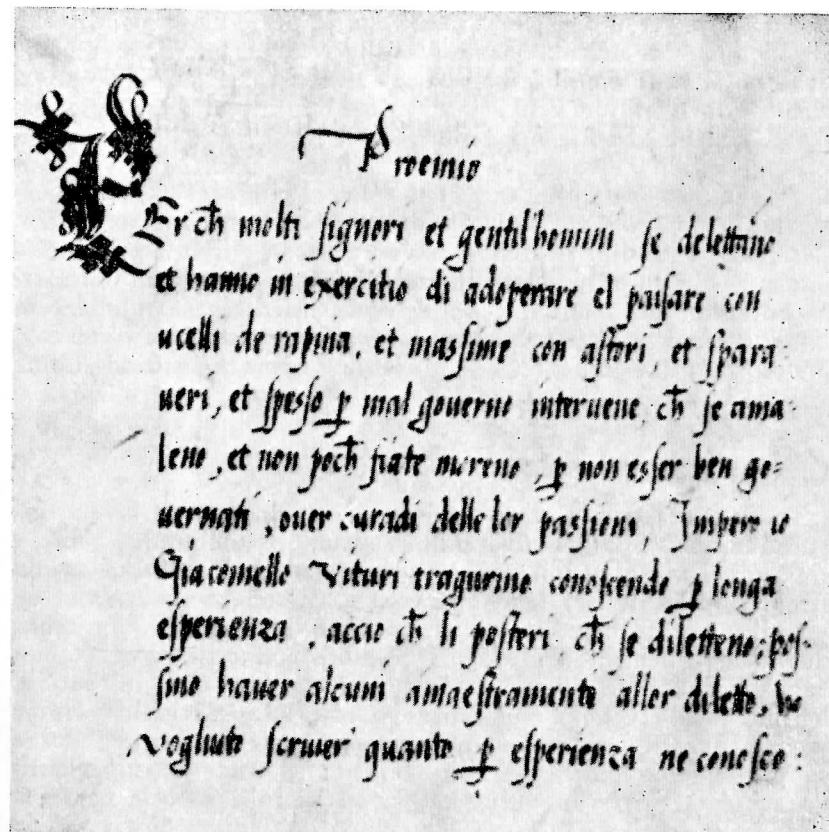 Proemio
Per ch̄ molti signori et gentil'homini se delettano
et hanno in exercitio di adoperare el paisare con
ucelli de rapina, et massime con astori, et spara
ueri, et spesso ꝑ mal governo interuene ch̄ se ama-
leno, et non poch̄ fiate moreno, ꝑ non esser ben go=
uernati, ouer curadi delle lor passioni, Impero io
Giacomello Vituri tragurino conoscendo ꝑ longa
esperienza, accio ch̄ li posteri, ch̄ se diletteno, pos-
sino hauer alcuni amaestramenti aller diletto, ho
vogliuto scriuer' quanto ꝑ esperienza ne conosco: